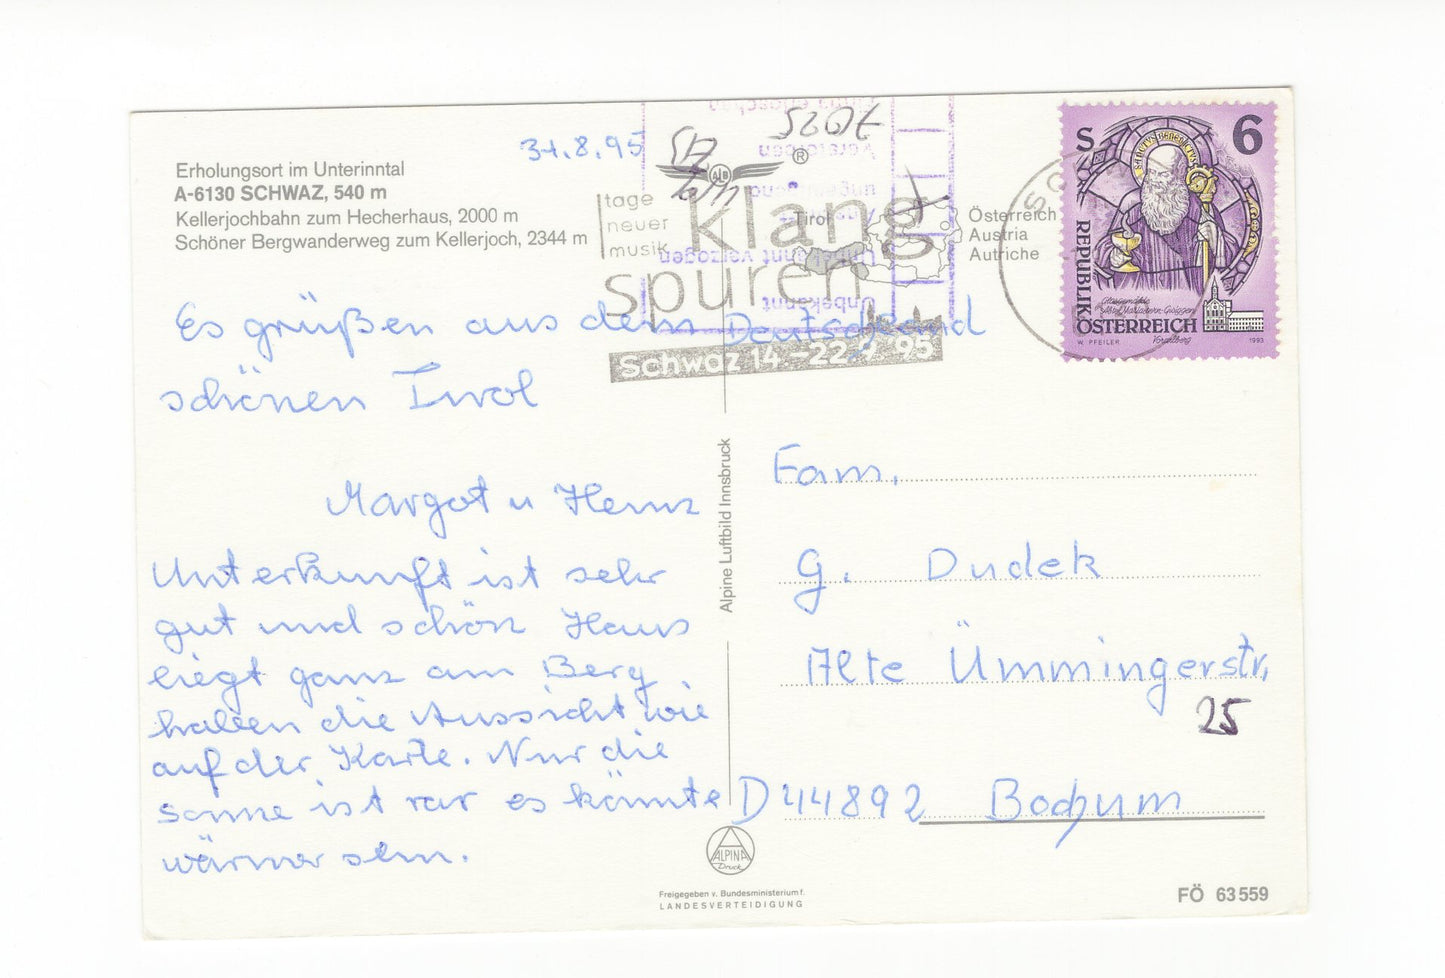 Erholungsort im Unterinntal
A-6130 SCHWAZ, 540 m
Kellerjochbahn zum Hecherhaus, 2000 m
Schöner Bergwanderweg zum Kellerjoch, 2344 m
31.8.95
Es grüßen aus dem
schönen Tirol
Margot u Heinz
Unterkunft ist sehr
gut und schön Haus
liegt ganz am Berg,
haben die Aussicht wie
auf der Karte. Nur die
Sonne ist rar es könnte
wärmer sein.
Alpine Luftbild Innsbruck
tage
neuer
musik
klang
spuren
Schwaz 14-22.9 '95
®
Tirol
Österreich
Austria
Autriche
7025
Verstorben
ungenügend
Unbekannt verzogen
Unbekannt
Deutschland
S 6
SANCTUS BENEDICTUS
REPUBLIK
ÖSTERREICH
W. PFEILER
Vorarlberg
1993
Fam.
G. Dudek
Alte Ümmingerstr.
25
D 44892 Bochum
ALPINA
Druck
Freigegeben v. Bundesministerium f.
LANDESVERTEIDIGUNG
FÖ 63559